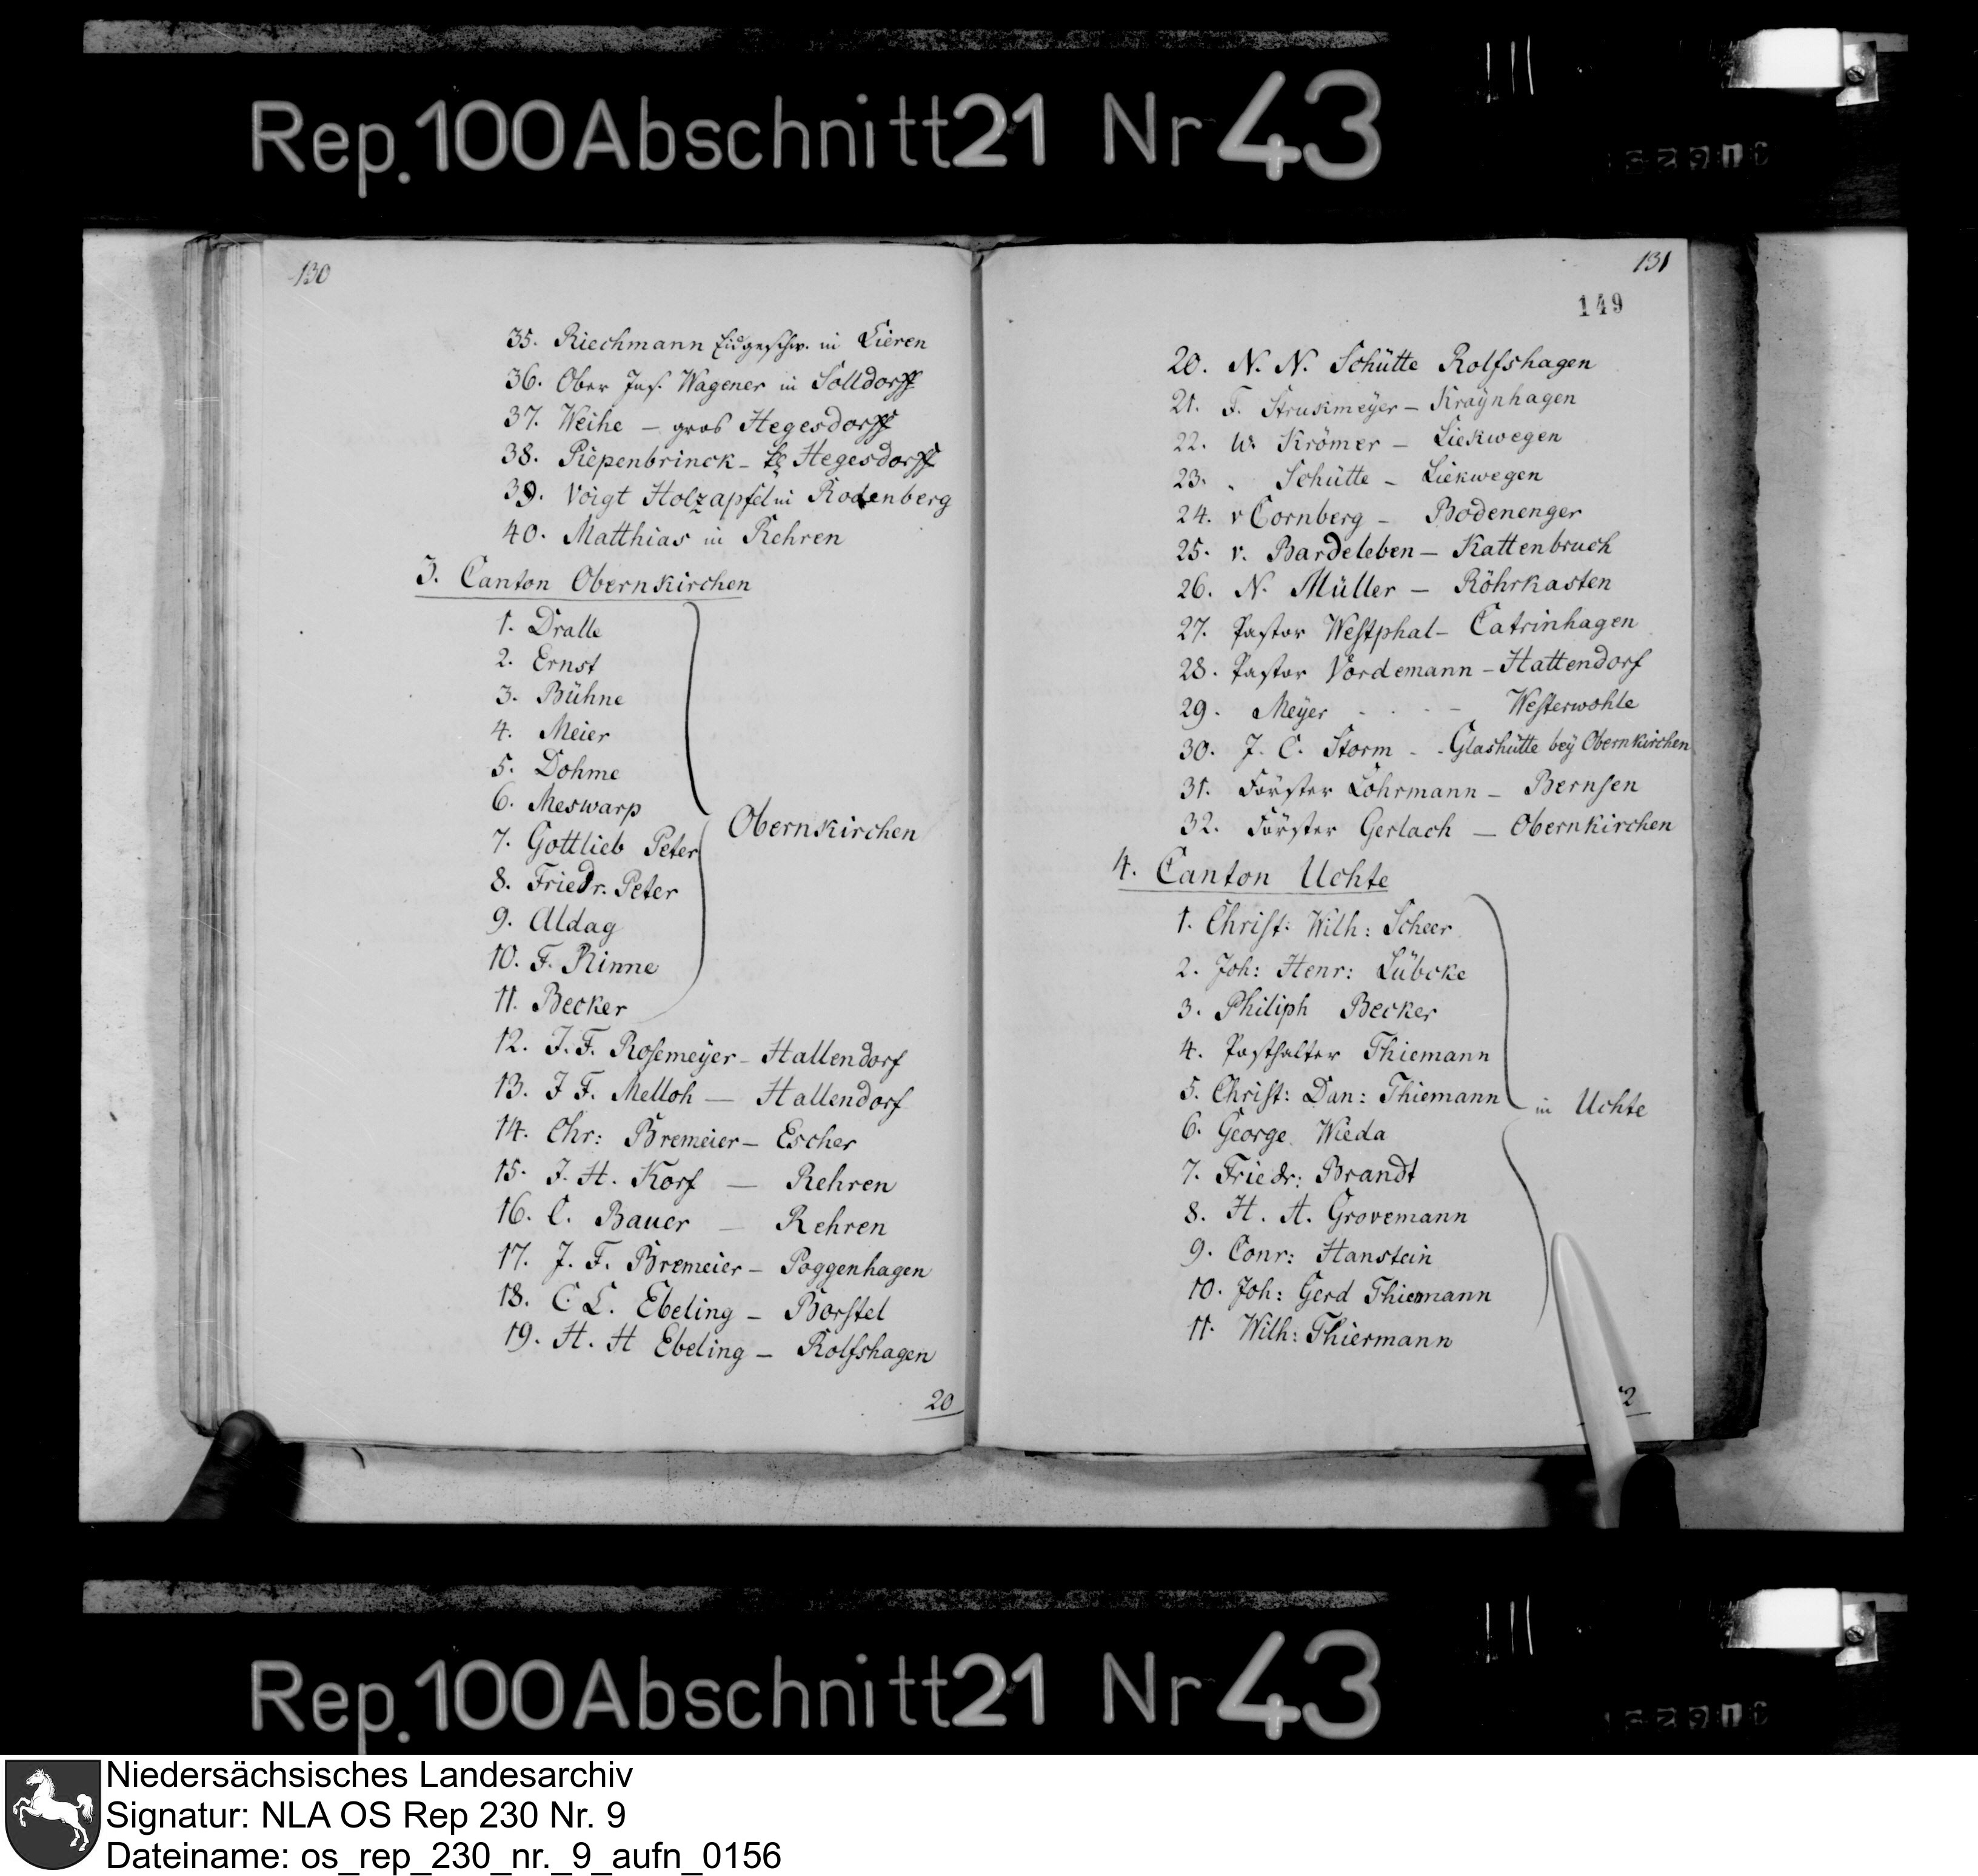 Rep. 100 Abschnitt 21 Nr 43
130
35. Riechmann Eidgeschw. in Lieren
36. Ober Insp. Wagener in Solldorff
37. Weihe – gros Hegesdorff
38. Piepenbrinck – kl Hegesdorff
39. Voigt Holzapfel in Rodenberg
40. Matthias in Rehren
3. Canton Obernkirchen
1. Dralle
2. Ernst
3. Bühne
4. Meier
5. Dohme
6. Meswarp
Obernkirchen
7. Gottlieb Peter
8. Friedr. Peter
9. Aldag
10. F. Rinne
11. Becker
12. J. F. Rosemeÿer – Hallendorf
13. J F. Melloh — Hallendorf
14. Chr: Bremeier – Escher
15. J. H. Korf — Rehren
16. C. Bauer — Rehren
17. J. F. Bremeier – Poggenhagen
18. C. L. Ebeling – Borstel
19. H. H Ebeling – Rolfshagen
20
131
149
20. N. N. Schütte Rolfshagen
21. F. Strukmeÿer – Kraÿnhagen
22. W. Krömer – Liekwegen
23. " Schütte – Liekwegen
24. v Cornberg – Bodenenger
25. v. Bardeleben – Kattenbruch
26. N. Müller – Röhrkasten
27. Pastor Westphal – Catrinhagen
28. Pastor Vordemann – Hattendorf
29. Meÿer - - - Westerwohle
30. J. C. Storm - - Glashütte beÿ Obernkirchen
31. Förster Löhrmann – Bernsen
32. Förster Gerlach — Obernkirchen
4. Canton Uchte
1. Christ: Wilh: Scheer
2. Joh: Henr: Lübcke
3. Philiph Becker
4. Posthalter Thiemann
5. Christ: Dan: Thiemann
in Uchte
6. George Wieda
7. Friedr: Brandt
8. H. A. Grovemann
9. Conr: Hanstein
10. Joh: Gerd Thiemann
11. Wilh: Thiermann
2
Rep. 100 Abschnitt 21 Nr 43
Niedersächsisches Landesarchiv
Signatur: NLA OS Rep 230 Nr. 9
Dateiname: os_rep_230_nr._9_aufn_0156